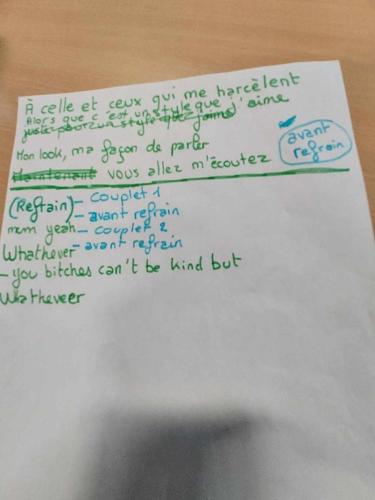 À celle et ceux qui me harcèlent
Alors que c'est un style que j'aime
juste pour un style que j'aime
Mon look, ma façon de parler
Maintenant vous allez m'écoutez
avant
refrain
(Refrain) - Couplet 1
- avant refrain
mm yeah - Couplet 2
Whathever - avant refrain
- you bitches can't be kind but
Whatheveer